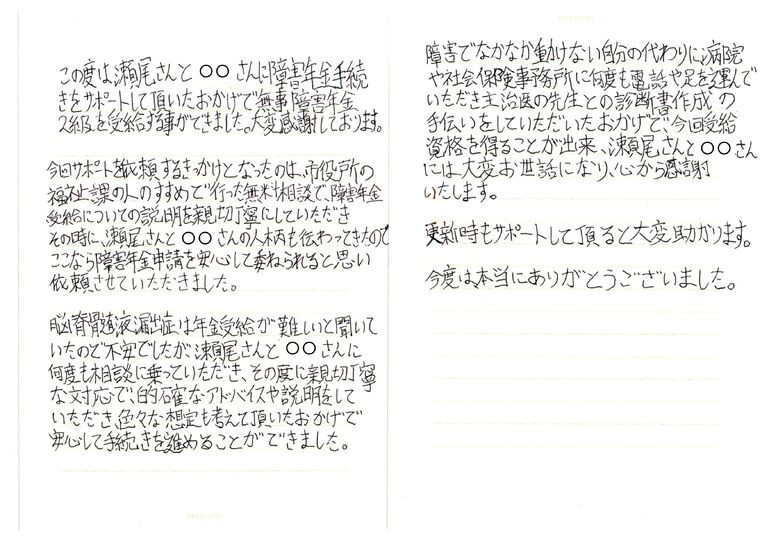 この度は瀬尾さんと○○さんに障害年金手続
きをサポートして頂いたおかげで無事障害年金
2級を受給する事ができました。大変感謝しております。
今回サポートを依頼するきっかけとなったのは、市役所の
福祉課の人のすすめで行った無料相談で、障害年金
受給についての説明を親切丁寧にしていただき
その時に、瀬尾さんと○○さんの人柄も伝わってきたので
ここなら障害年金申請を安心して委ねられると思い
依頼させていただきました。
脳脊髄液漏出症は年金受給が難しいと聞いて
いたので不安でしたが、瀬尾さんと○○さんに
何度も相談に乗っていただき、その度に親切丁寧
な対応で、的確なアドバイスや説明をして
いただき、色々な想定も考えて頂いたおかげで
安心して手続きを進めることができました。
障害でなかなか動けない自分の代わりに病院
や社会保険事務所に何度も電話や足を運んで
いただき主治医の先生との診断書作成の
手伝いをしていただいたおかげで、今回受給
資格を得ることが出来、瀬尾さんと○○さん
には大変お世話になり、心から感謝
いたします。
更新時もサポートして頂ると大変助かります。
今度は、本当にありがとうございました。